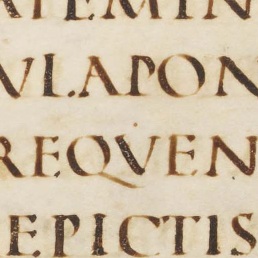 ATEMIN
VLAPON
REQVEN
EPICTIS